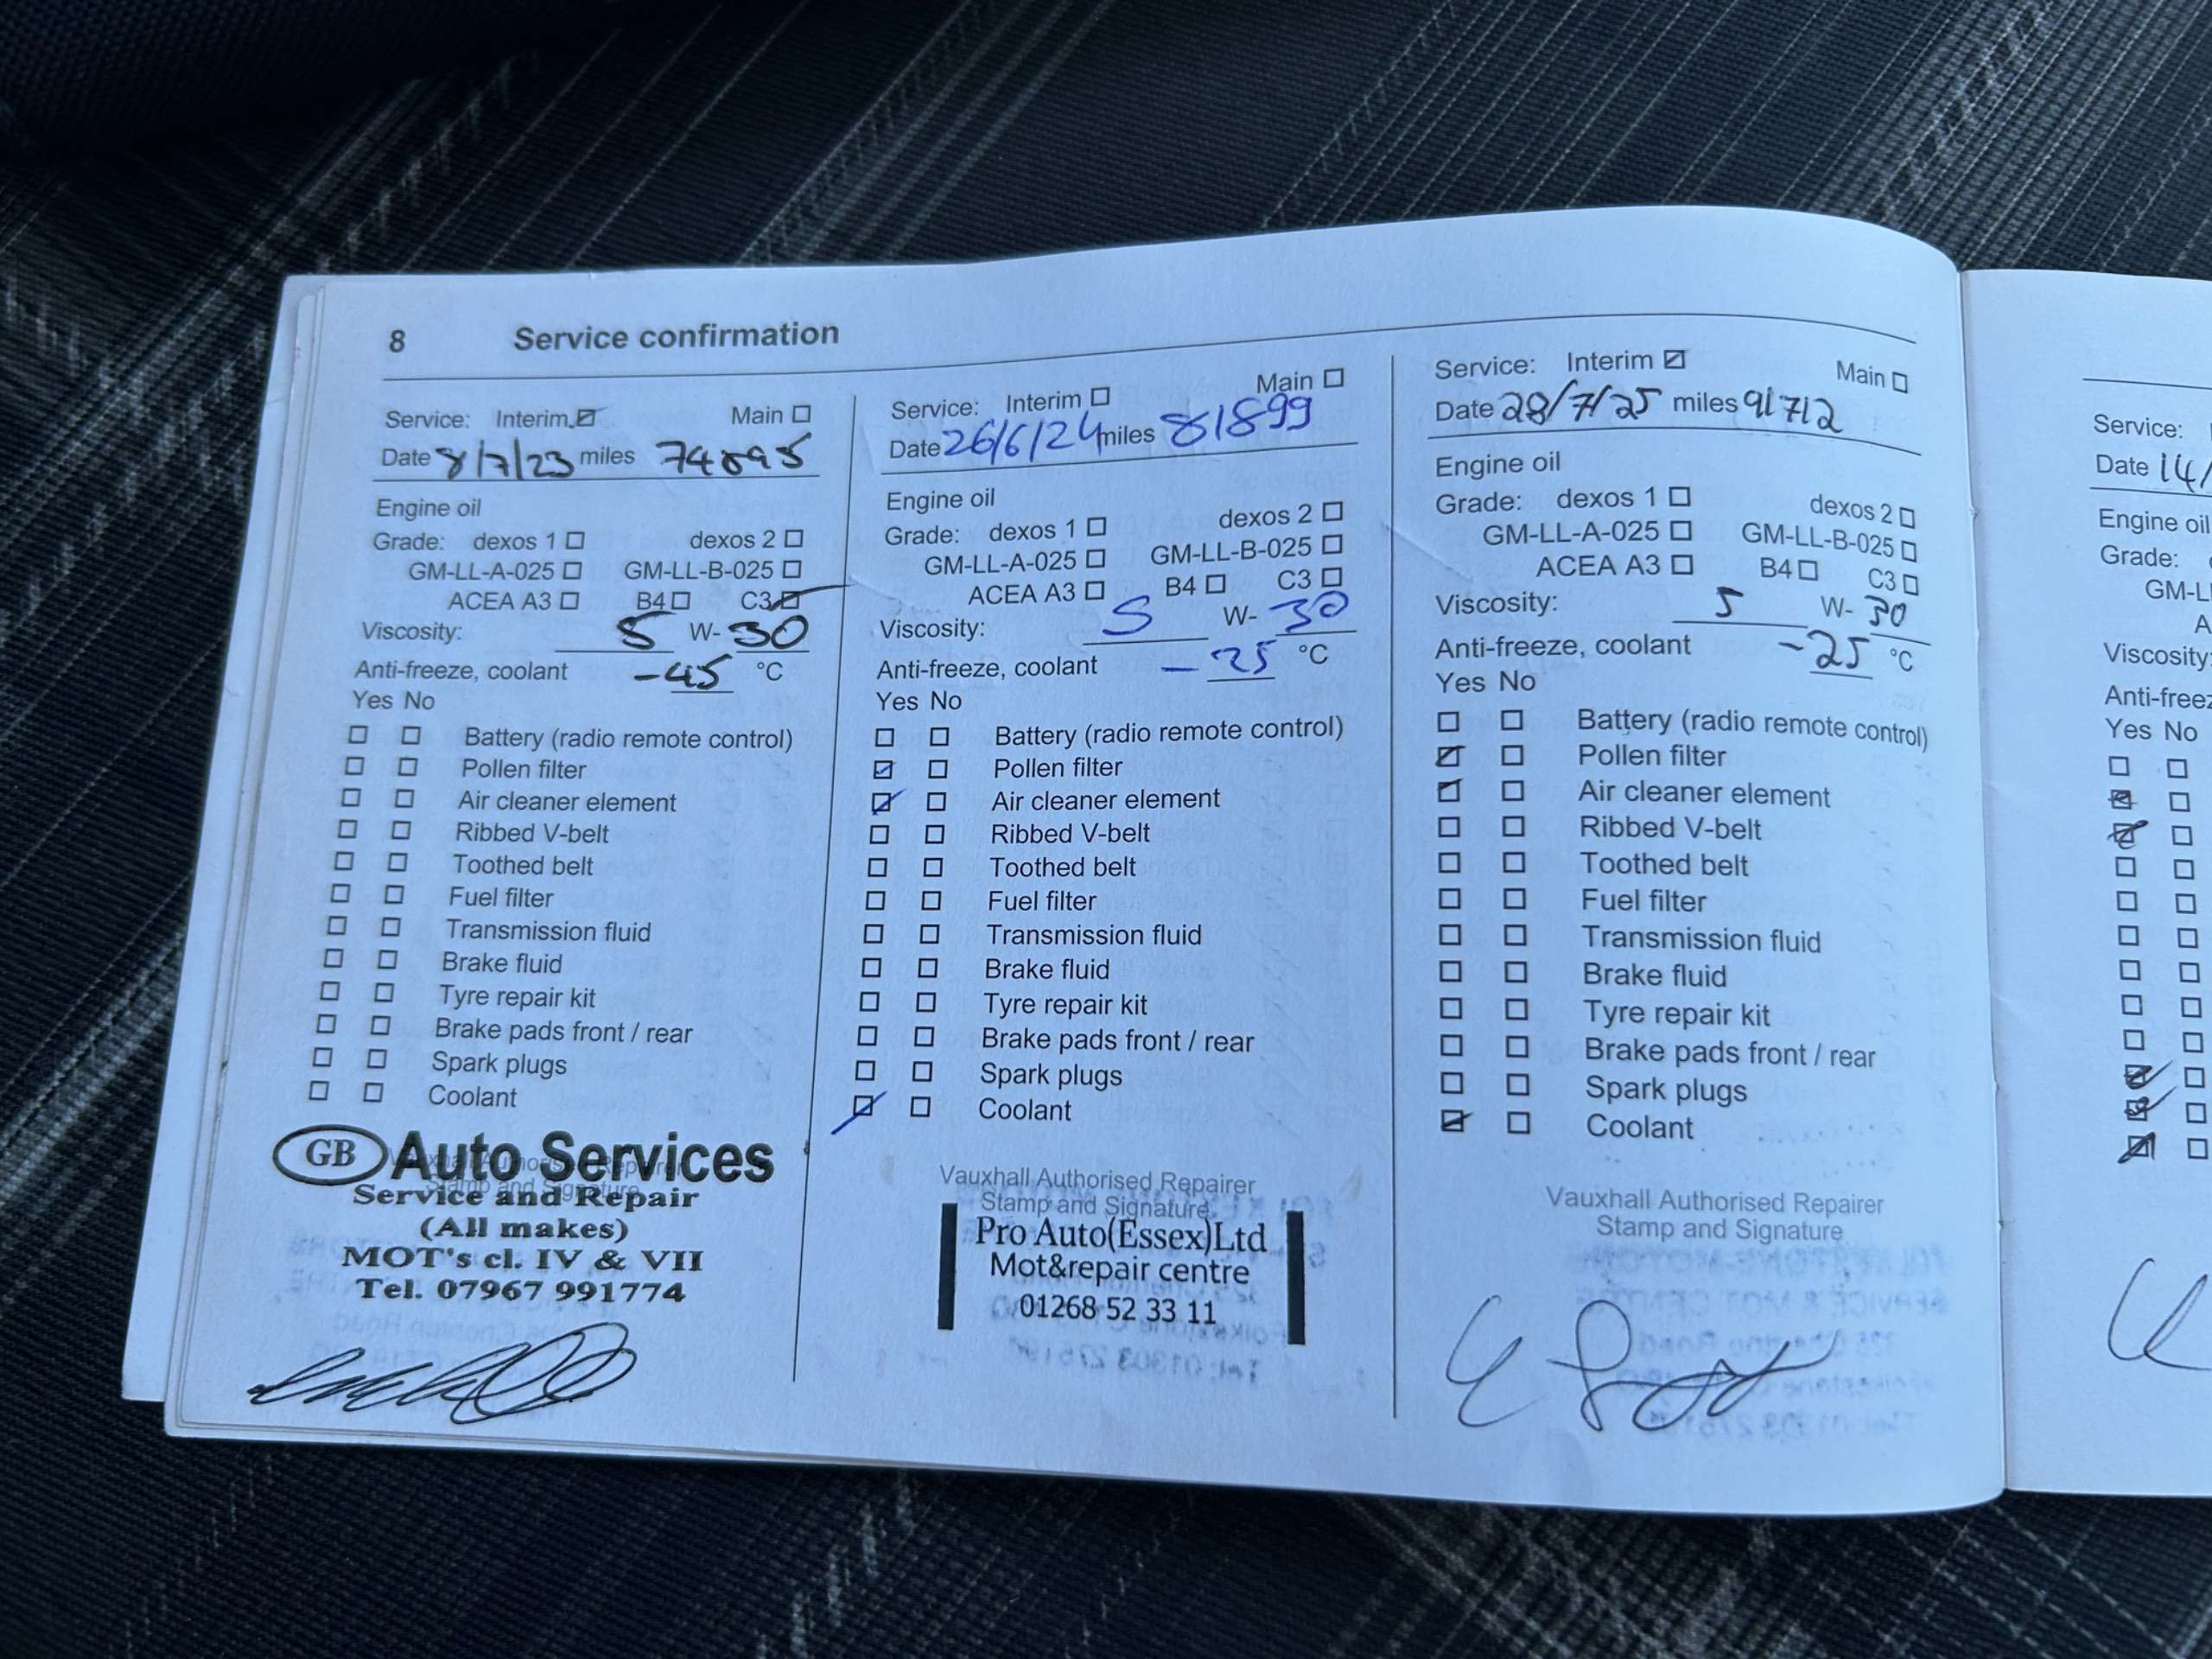 8 Service confirmation
Service: Interim ☑ Main ☐
Date 8/7/23 miles 74895
Engine oil
Grade: dexos 1 ☐ dexos 2 ☐
GM-LL-A-025 ☐ GM-LL-B-025 ☐
ACEA A3 ☐ B4 ☐ C3 ☑
Viscosity: 5 W- 30
Anti-freeze, coolant -45 °C
Yes No
☐ ☐ Battery (radio remote control)
☐ ☐ Pollen filter
☐ ☐ Air cleaner element
☐ ☐ Ribbed V-belt
☐ ☐ Toothed belt
☐ ☐ Fuel filter
☐ ☐ Transmission fluid
☐ ☐ Brake fluid
☐ ☐ Tyre repair kit
☐ ☐ Brake pads front / rear
☐ ☐ Spark plugs
☐ ☐ Coolant
Vauxhall Authorised Repairer
Stamp and Signature
GB Auto Services
Service and Repair
(All makes)
MOT's cl. IV & VII
Tel. 07967 991774
Service: Interim ☐ Main ☐
Date 26/6/24 miles 81899
Engine oil
Grade: dexos 1 ☐ dexos 2 ☐
GM-LL-A-025 ☐ GM-LL-B-025 ☐
ACEA A3 ☐ B4 ☐ C3 ☐
Viscosity: 5 W- 30
Anti-freeze, coolant -25 °C
Yes No
☐ ☐ Battery (radio remote control)
☑ ☐ Pollen filter
☑ ☐ Air cleaner element
☐ ☐ Ribbed V-belt
☐ ☐ Toothed belt
☐ ☐ Fuel filter
☐ ☐ Transmission fluid
☐ ☐ Brake fluid
☐ ☐ Tyre repair kit
☐ ☐ Brake pads front / rear
☐ ☐ Spark plugs
☑ ☐ Coolant
Vauxhall Authorised Repairer
Stamp and Signature
Pro Auto(Essex)Ltd
Mot&repair centre
01268 52 33 11
Service: Interim ☑ Main ☐
Date 28/7/25 miles 91712
Engine oil
Grade: dexos 1 ☐ dexos 2 ☐
GM-LL-A-025 ☐ GM-LL-B-025 ☐
ACEA A3 ☐ B4 ☐ C3 ☐
Viscosity: 5 W- 30
Anti-freeze, coolant -25 °C
Yes No
☐ ☐ Battery (radio remote control)
☑ ☐ Pollen filter
☑ ☐ Air cleaner element
☐ ☐ Ribbed V-belt
☐ ☐ Toothed belt
☐ ☐ Fuel filter
☐ ☐ Transmission fluid
☐ ☐ Brake fluid
☐ ☐ Tyre repair kit
☐ ☐ Brake pads front / rear
☐ ☐ Spark plugs
☑ ☐ Coolant
Vauxhall Authorised Repairer
Stamp and Signature
Service:
Date 14/
Engine oil
Grade:
GM-L
A
Viscosity:
Anti-freez
Yes No